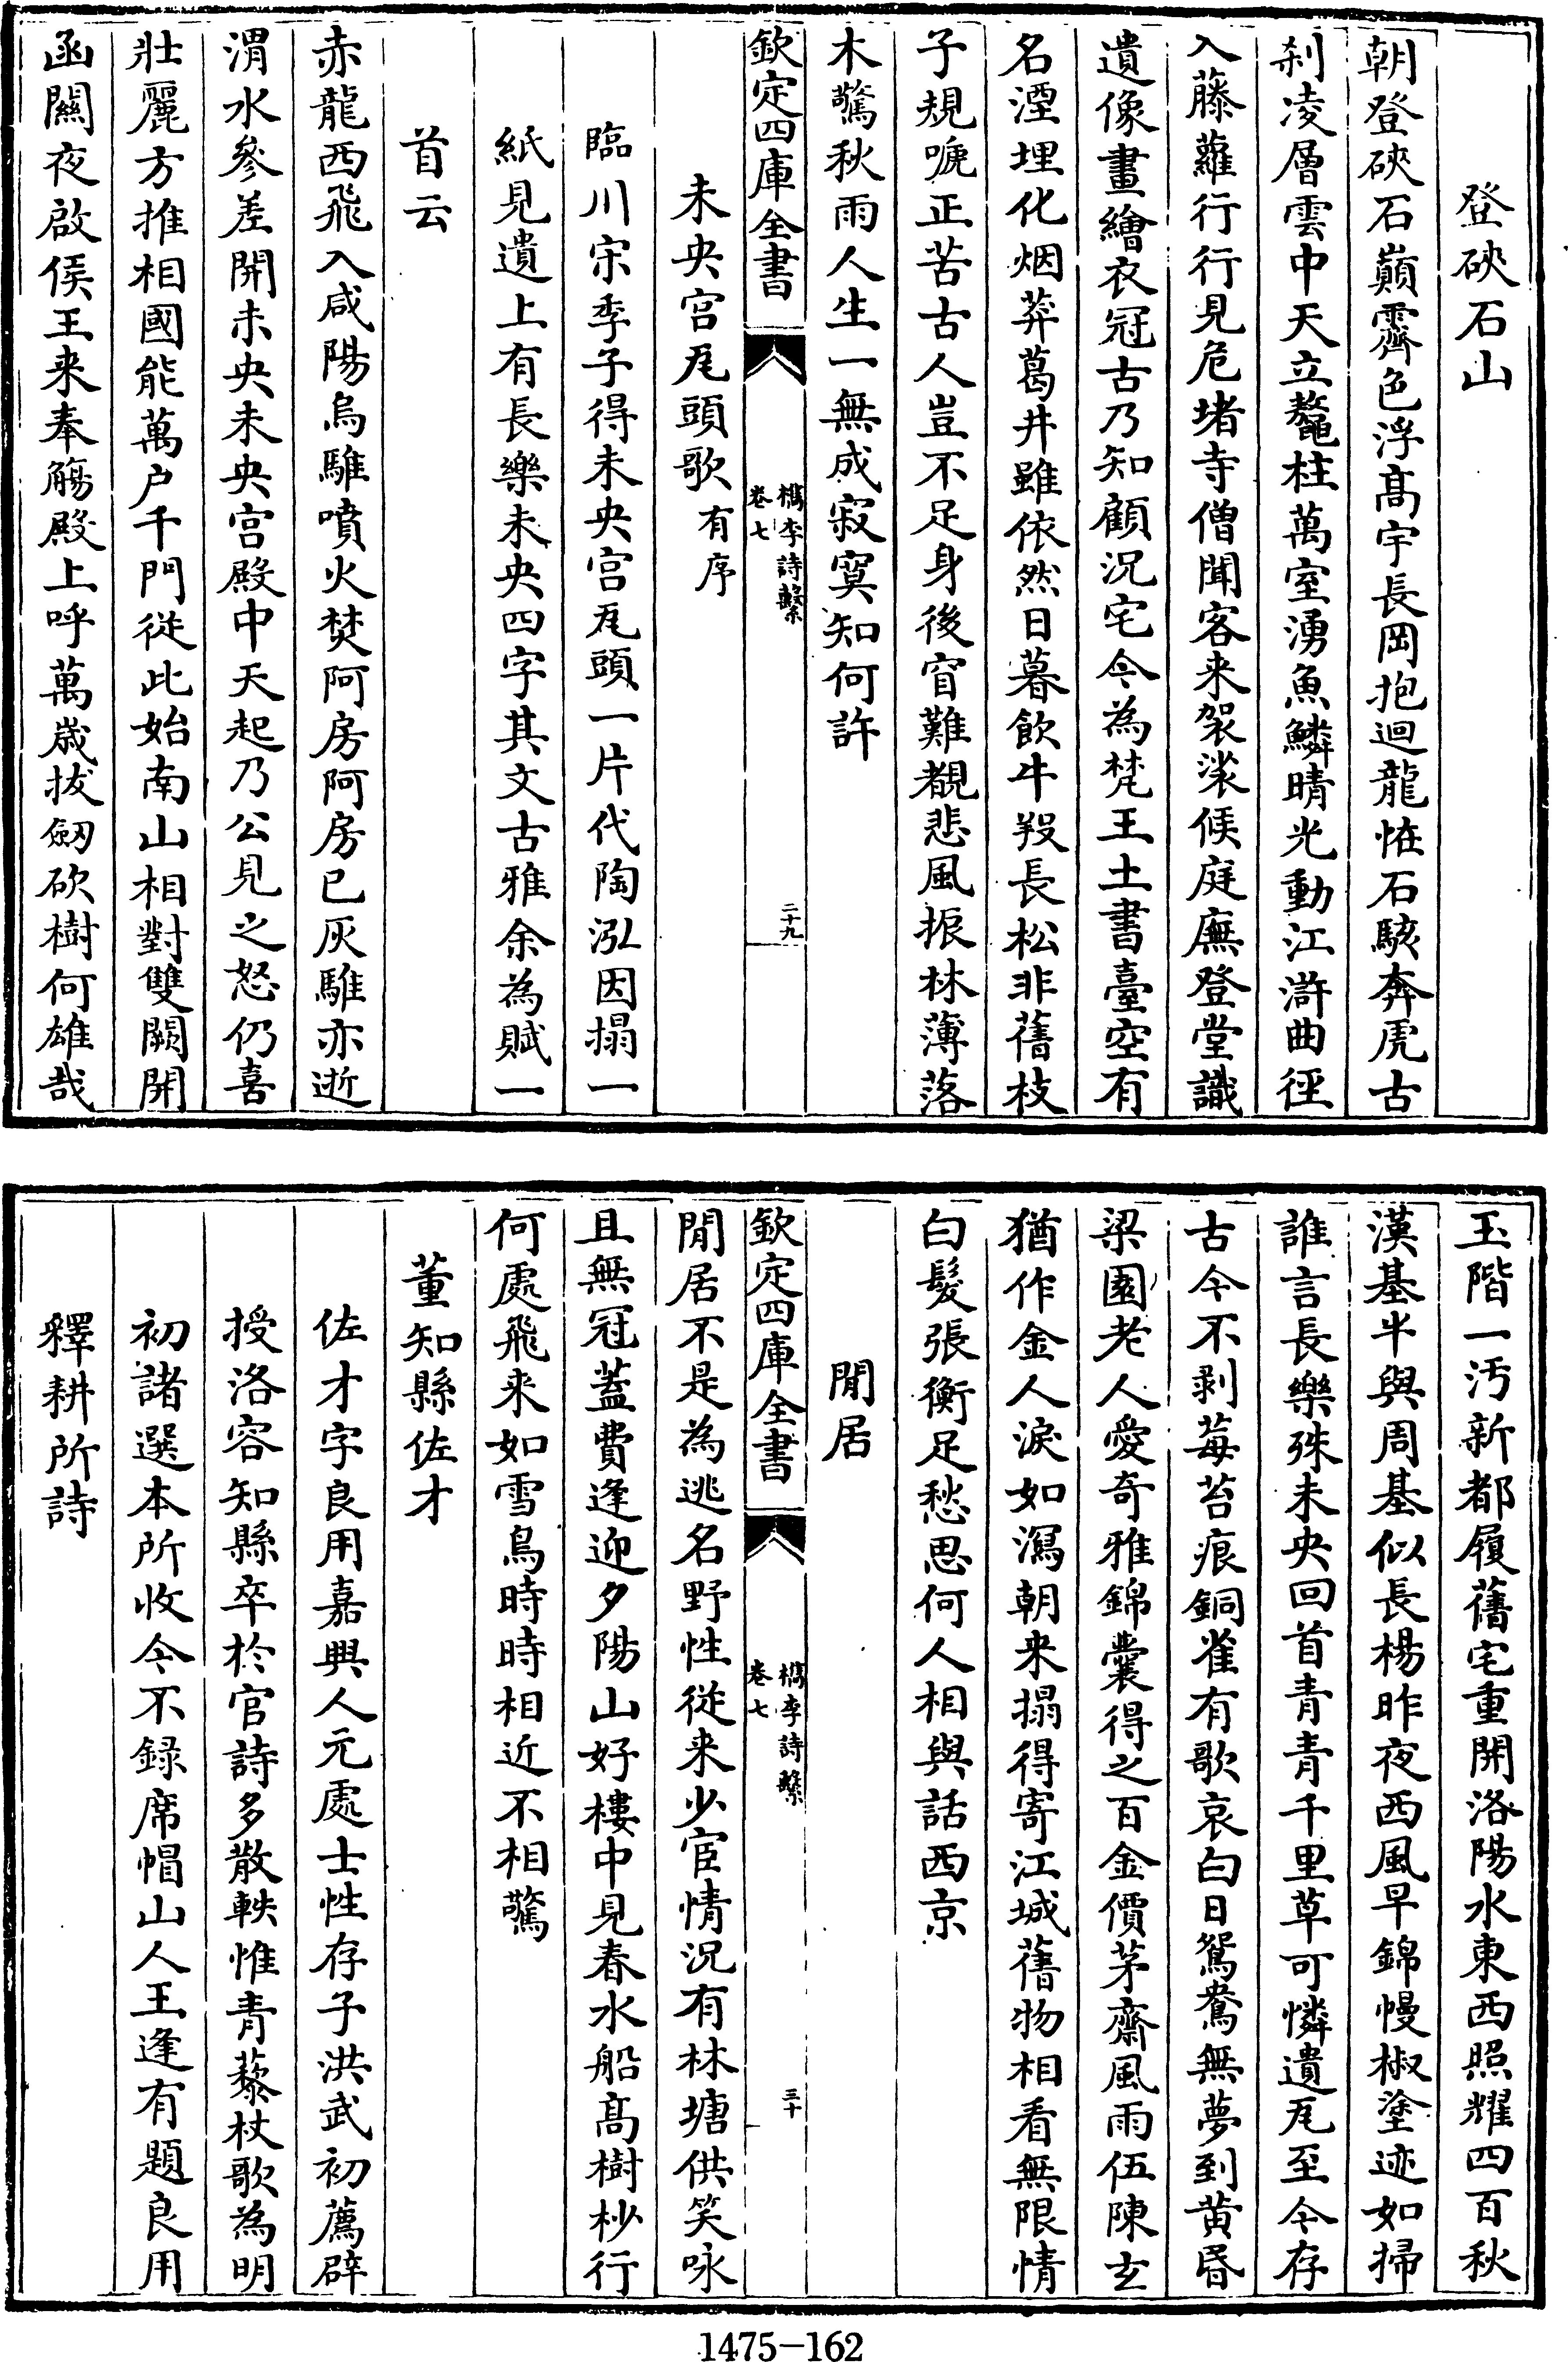 登硤石山
朝登硤石巔霽色浮髙宇長岡抱迴龍恠石駭奔虎古
刹凌層雲中天立鼇柱萬室湧魚鱗晴光動江滸曲徑
入藤蘿行行見危堵寺僧聞客来袈裟候庭廡登堂識
遺像畫繪衣冠古乃知顧況宅今為梵王土書臺空有
名湮埋化烟莽葛井雖依然日暮飲牛羖長松非舊枝
子規嗁正苦古人豈不足身後窅難覩悲風振林薄落
木驚秋雨人生一無成寂寞知何許
欽定四庫全書
檇李詩繫
卷七
二十九
未央宫瓦頭歌有序
臨川宋季子得未央宫瓦頭一片代陶泓因搨一
紙見遺上有長樂未央四字其文古雅余為賦一
首云
赤龍西飛入咸陽烏騅噴火焚阿房阿房已灰騅亦逝
渭水參差開未央未央宫殿中天起乃公見之怒仍喜
壯麗方推相國能萬户千門従此始南山相對雙闕開
函關夜啟侯王来奉觴殿上呼萬嵗拔劒砍樹何雄哉
玉階一汚新都履舊宅重開洛陽水東西照耀四百秋
漢基半與周基似長楊昨夜西風早錦幔椒塗迹如掃
誰言長樂殊未央回首青青千里草可憐遺瓦至今存
古今不剥莓苔痕銅雀有歌哀白日鴛鴦無夢到黄昏
梁園老人愛奇雅錦囊得之百金價茅齋風雨伍陳玄
猶作金人淚如瀉朝来搨得寄江城舊物相看無限情
白髮張衡足愁思何人相與話西京
閒居
欽定四庫全書
檇李詩繫
卷七
三十
閒居不是為逃名野性従来少宦情况有林塘供笑咏
且無冠蓋費逢迎夕陽山好樓中見春水船髙樹杪行
何處飛来如雪鳥時時相近不相驚
董知縣佐才
佐才字良用嘉興人元處士性存子洪武初薦辟
授洛容知縣卒於官詩多散軼惟青藜杖歌為明
初諸選本所收今不録席帽山人王逢有題良用
釋耕所詩
1475-162